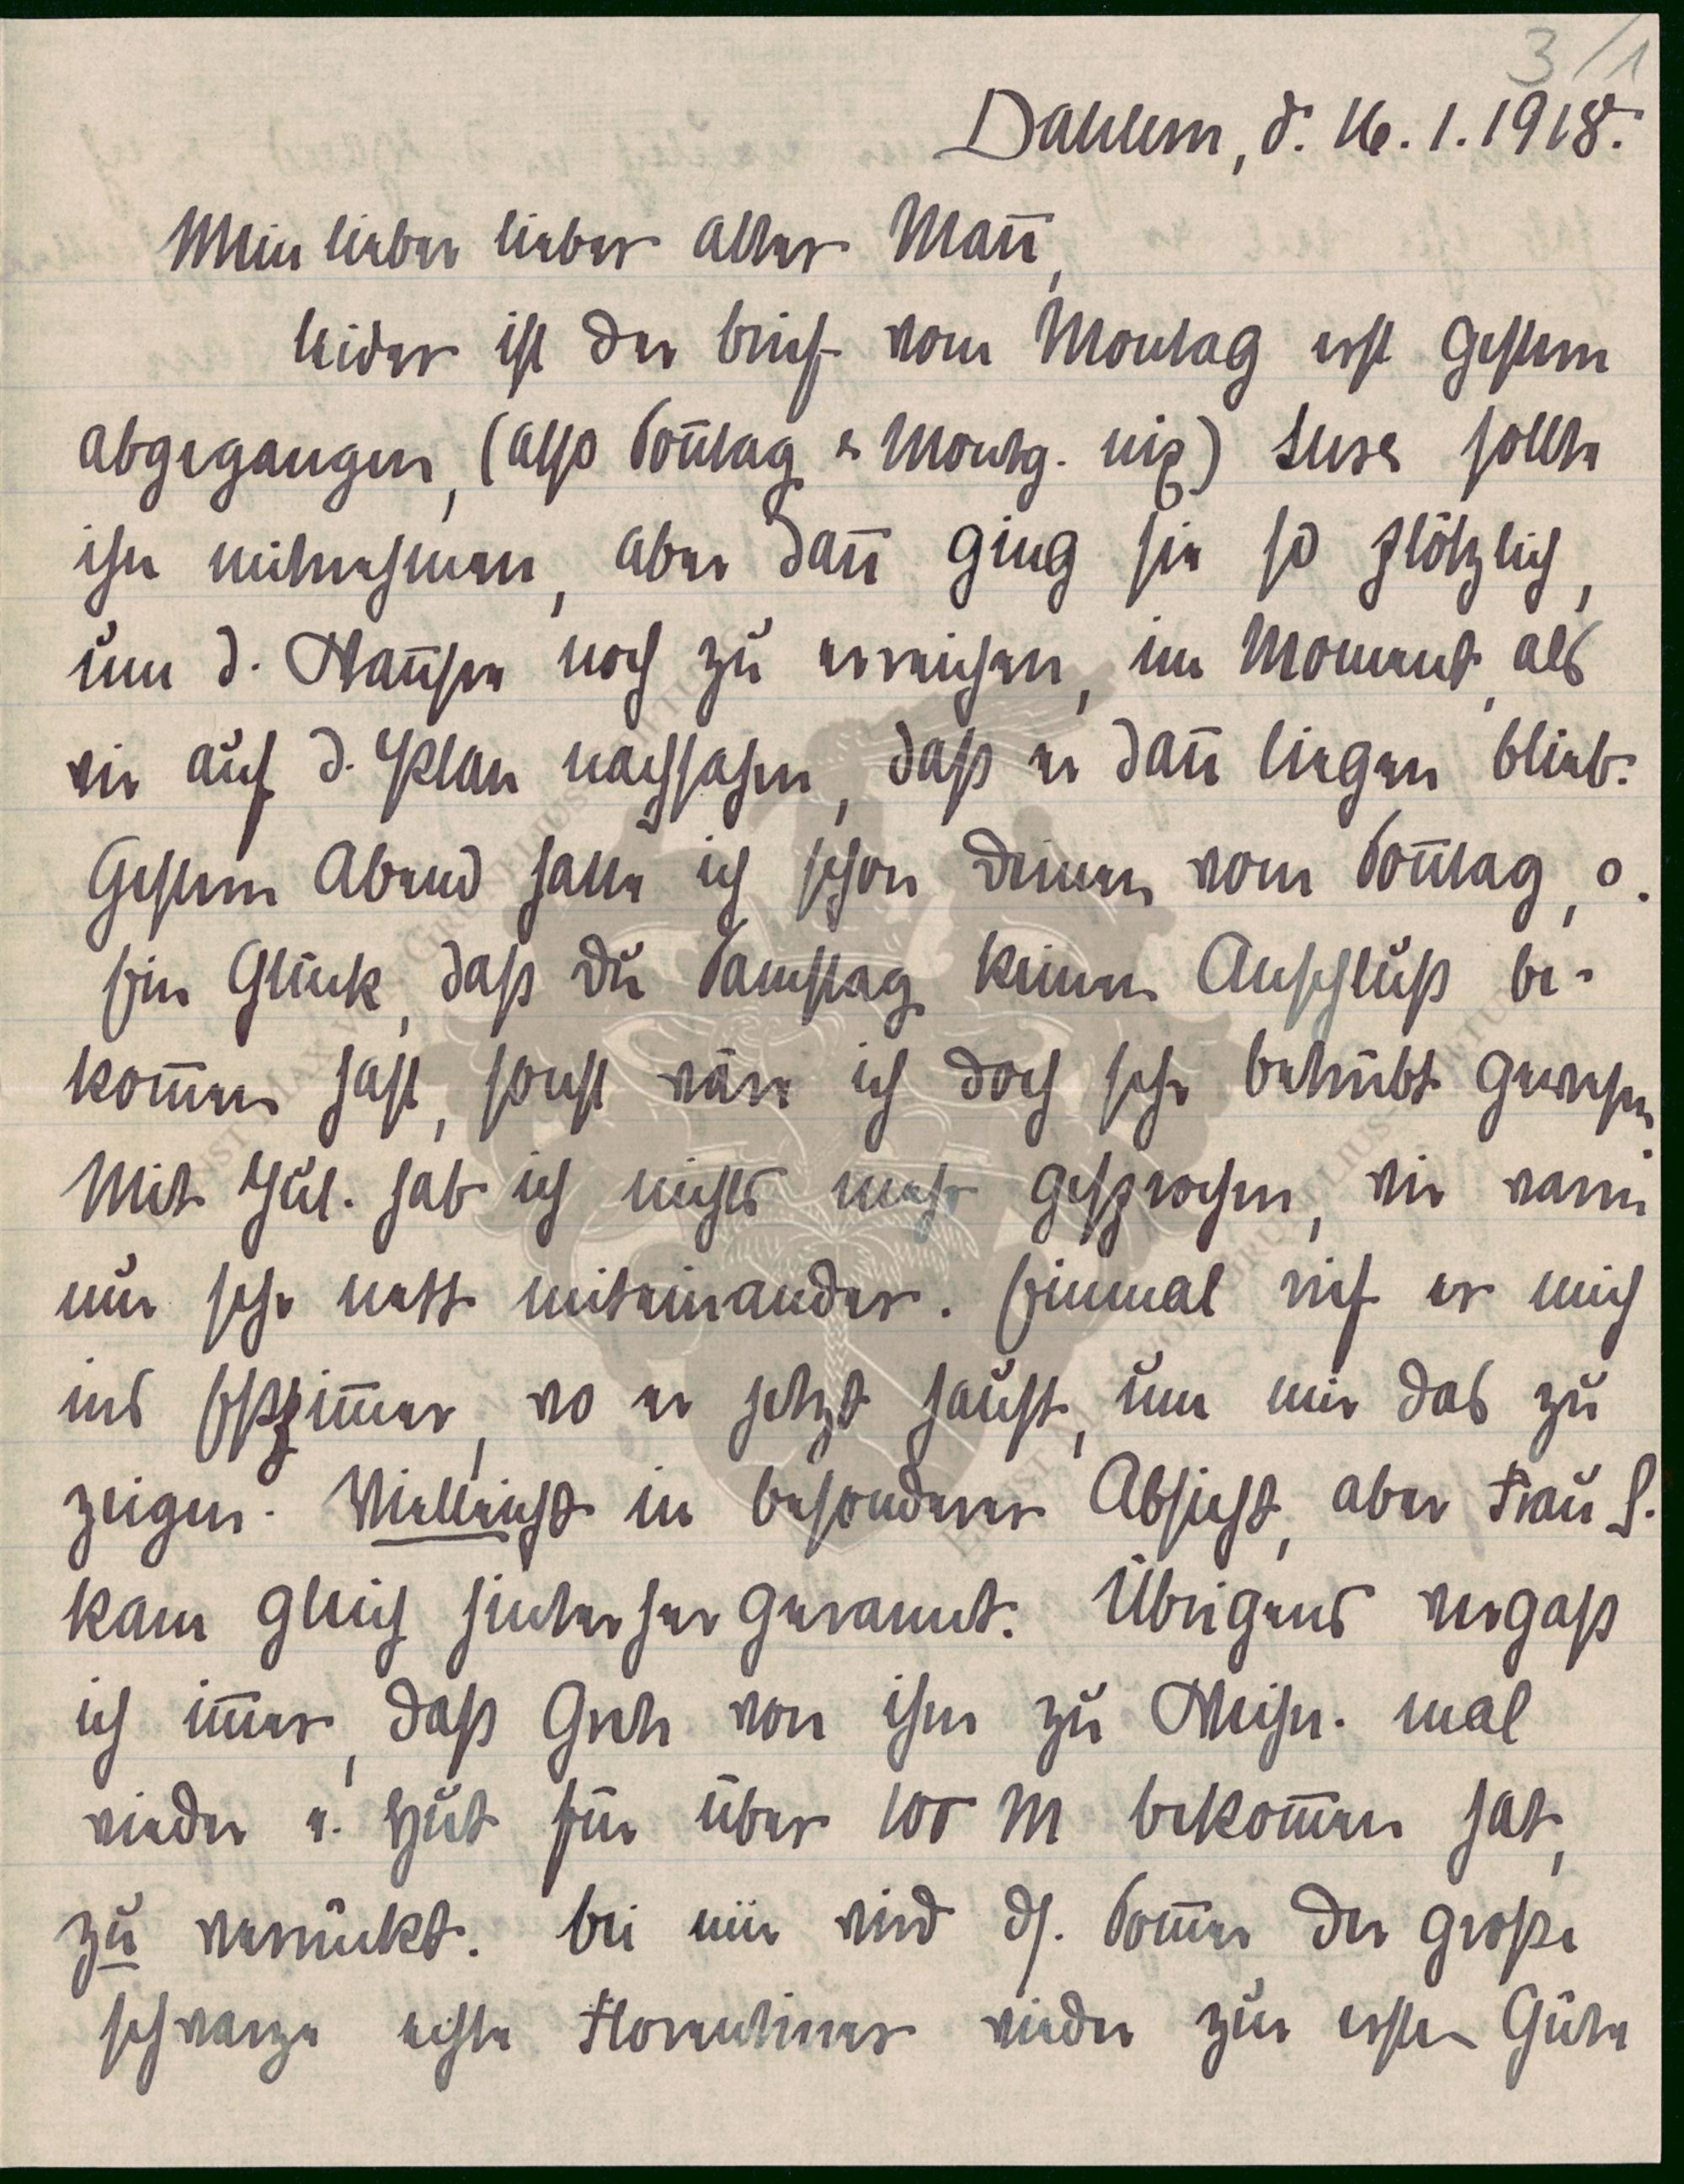 3/1
Dahlem, d. 16.1.1918.
Mein lieber lieber alter Mañ,
leider ist der Brief vom Montag erst gestern
abgegangen, (also Soñtag & Montg. nix) Suse sollte
ihn mitnehmen, aber dañ ging sie so plötzlich,
um d. Wañsee noch zu erreichen, im Moment, als
wir auf d. Plan nachsahen, daß er dañ liegen blieb.
Gestern Abend hatte ich schon Deinen vom Soñtag, o.
Ein Glück, daß Du Samstag keinen Anschluß be-
kom̄en hast, sonst wäre ich doch sehr betrübt gewesen.
Mit Jul. hab ich nichts mehr gesprochen, wir waren
nur sehr nett miteinander. Einmal rief er mich
ins Eßzim̄er, wo er jetzt haust, um mir das zu
zeigen. Vielleicht in besonderer Absicht, aber Frau
kam gleich hinterher gerannt. Übrigens vergaß
ich im̄er, daß Grete von ihm zu Weihn. mal
wieder e. Hut für über 100 M bekom̄en hat,
zu verrückt. Bei mir wird ds. Som̄er der große
schwarze echte Florentiner wieder zur ersten Güte